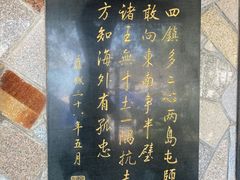 四鎮多二心兩島屯師
敢向東南爭半壁
諸王無寸土一隅抗志
方知海外有孤忠